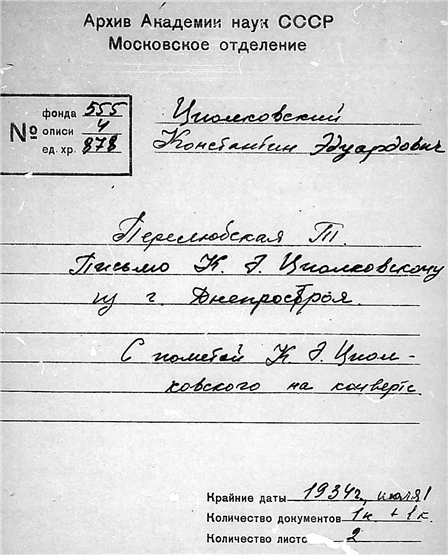 Архив Академии наук СССР
Московское отделение
№
фонда 555
описи 4
ед. хр. 878
Циолковский
Константин Эдуардович
Перелюбская Т.
Письмо К. Э. Циолковскому
из г. Днепростроя.
С пометой К. Э. Циол-
ковского на конверте.
Крайние даты 1934г, июля
Количество документов 1к + 1к.
Количество листов 2